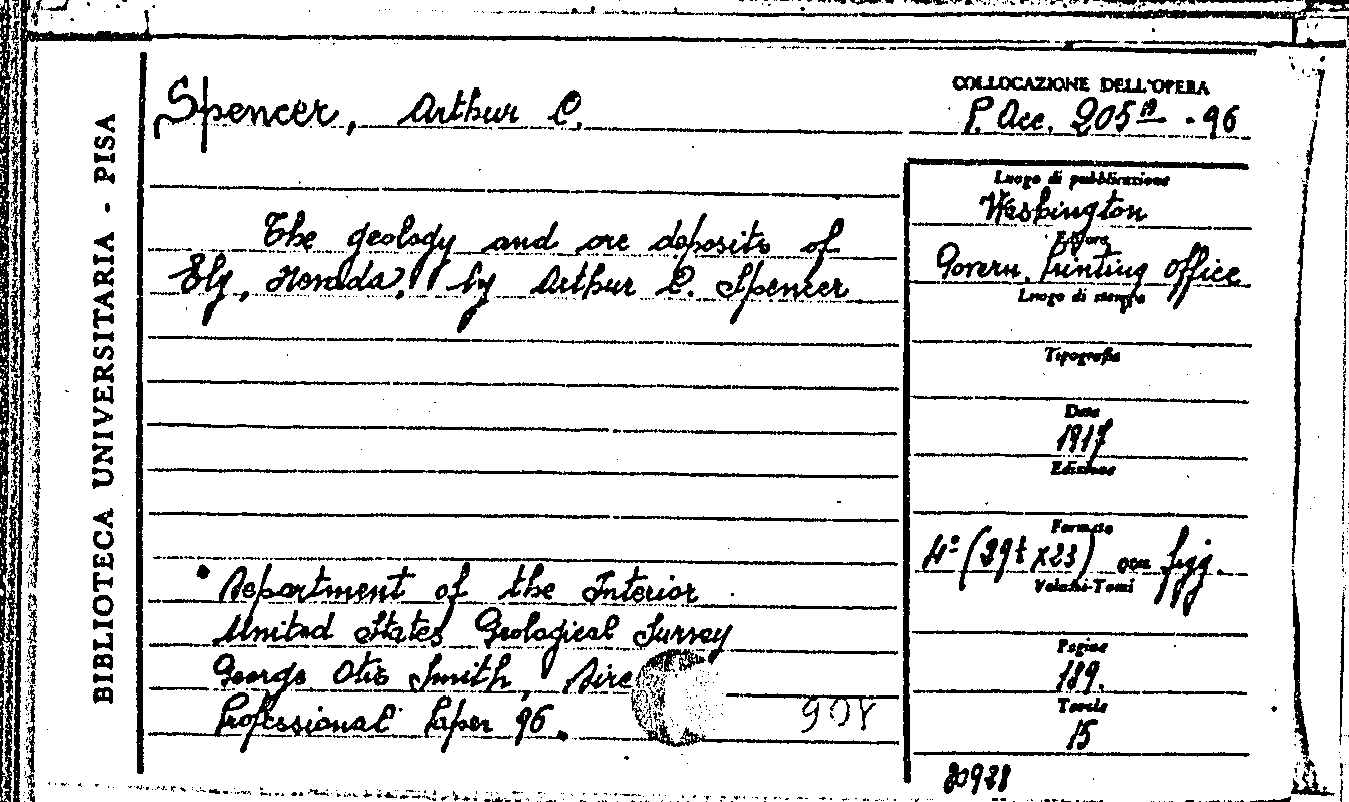 BIBLIOTECA UNIVERSITARIA - PISA
Spencer, Arthur C.
COLLOCAZIONE DELL'OPERA
P. Acc. 205 - 96
The geology and ore deposits of
Ely, Nevada, by Arthur C. Spencer
Luogo di pubblicazione
Washington
Editore
Govern. Printing Office
Luogo di stampa
Tipografia
Data
1917
Edizione
Formato
4° (29 x23) con figg.
Volumi-Tomi
Pagine
189.
Tavole
15
Department of the Interior
United States Geological Survey
George Otis Smith, Dire
Professional Paper 96.
904
20928